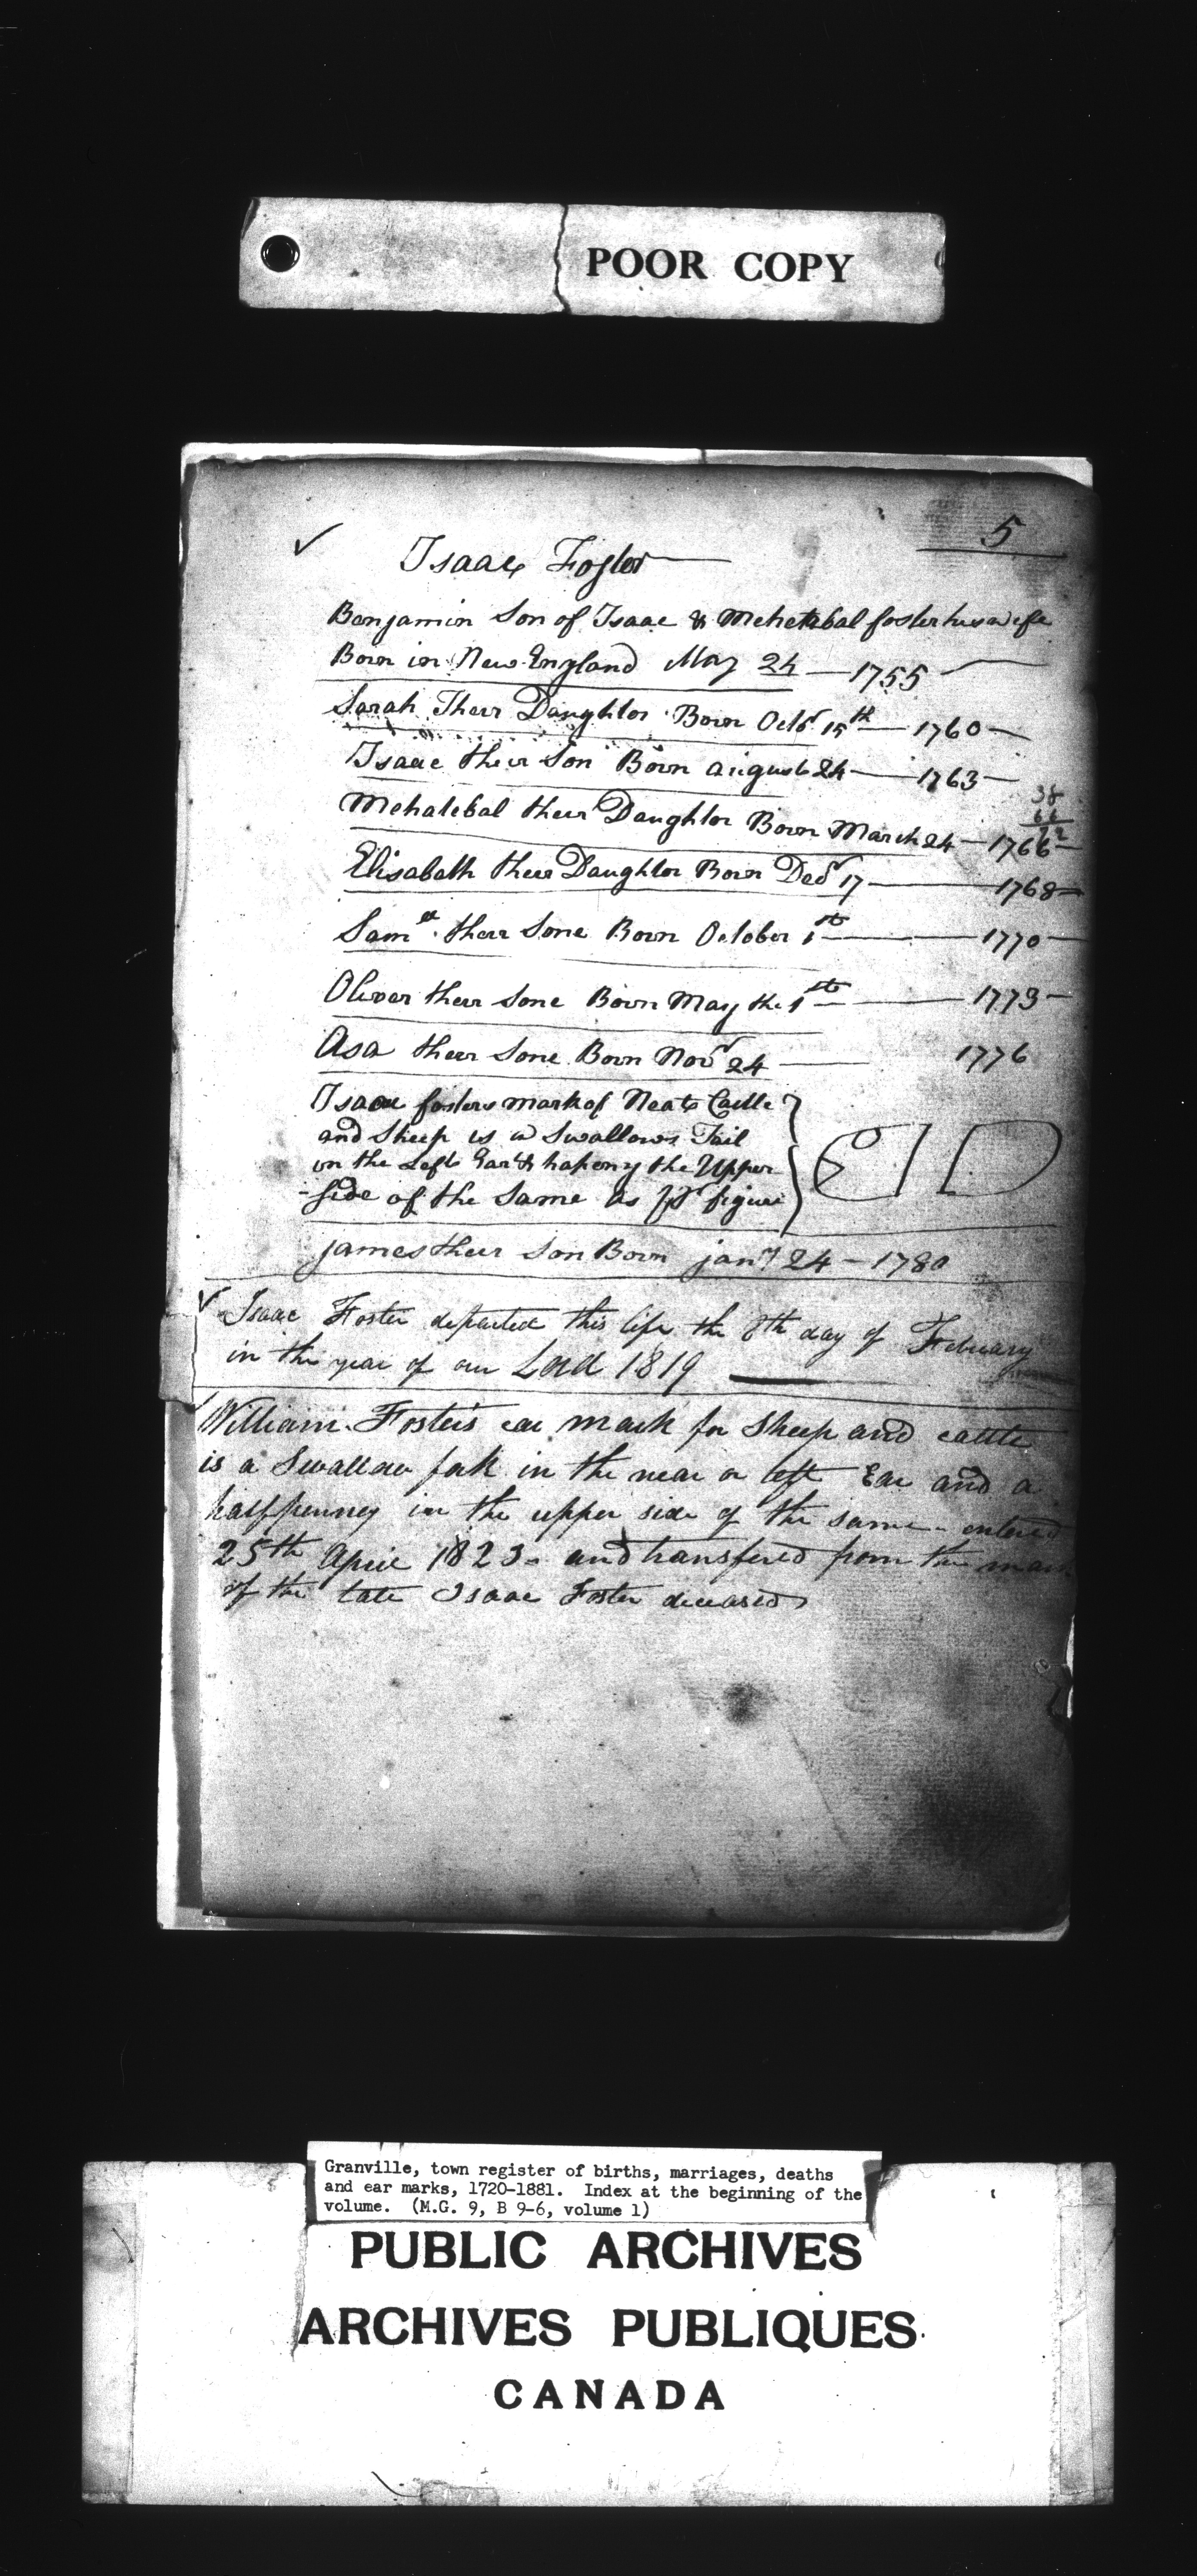 POOR COPY
5
Isaac Foster
Benjamin Son of Isaac & Mehetabal foster his wife
Born in New England May 24 — 1755
Sarah Their Daughter Born Octbr 15th — 1760
Isaac their Son Born august 24 — 1763
38
66
Mehatebal their Daughter Born March 24 — 1766
Elisabeth their Daughter Born Decr 17 — 1768
Samll their Sone Born October 1st — 1770
Oliver their Sone Born May the 1st — 1773
Asa their Sone Born Novr 24 — 1776
Isaac fosters mark of Neate Cattle
and Sheep is a Swallows Tail
in the Left Ear & hapeny the Upper
side of the Same as pr figure
james their Son Born janry 24 – 1780
Isaac Foster departed this life the 8th day of February
in the year of our Lord 1819
William Foster's ear mark for Sheep and cattle
is a Swallow fork in the near or left Ear and a
halfpenney in the upper side of the same – entered
25th April 1823 – and transfered from the
of the late Isaac Foster deceased
Granville, town register of births, marriages, deaths
and ear marks, 1720-1881. Index at the beginning of the
volume. (M.G. 9, B 9-6, volume 1)
PUBLIC ARCHIVES
ARCHIVES PUBLIQUES
CANADA